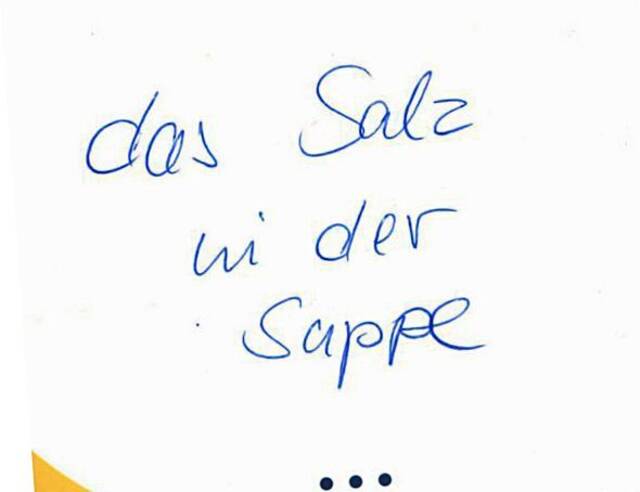 das Salz
in der
Suppe
...